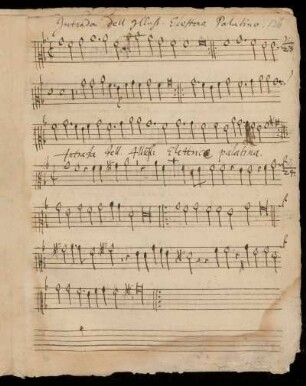 Intrada dell Illust. Elettore Palatino.
Intrada dell. Illust. Elettrice palatina.